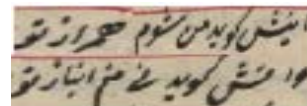 نیش گوید من شوم همراز تو
وا منش گوید نی منم انباز تو